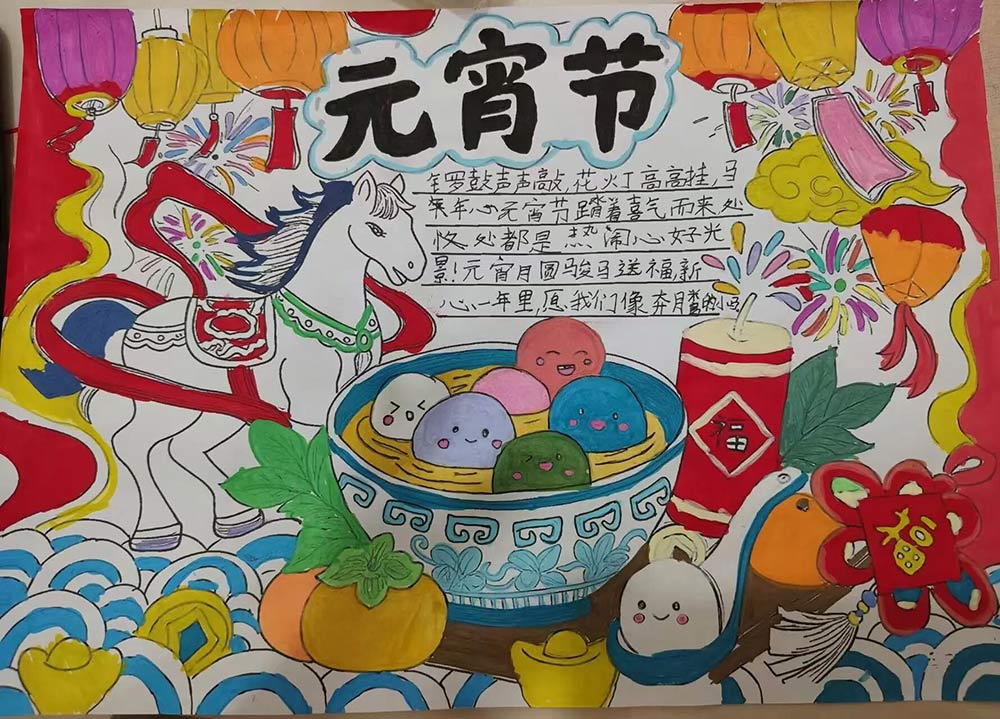 元宵节
锣鼓声声敲,花灯高高挂,马
年心元宵节踏着喜气而来处
处都是热闹心好光
景!元宵月圆骏马送福,新
心一年里,愿我们像奔月的小
福
福